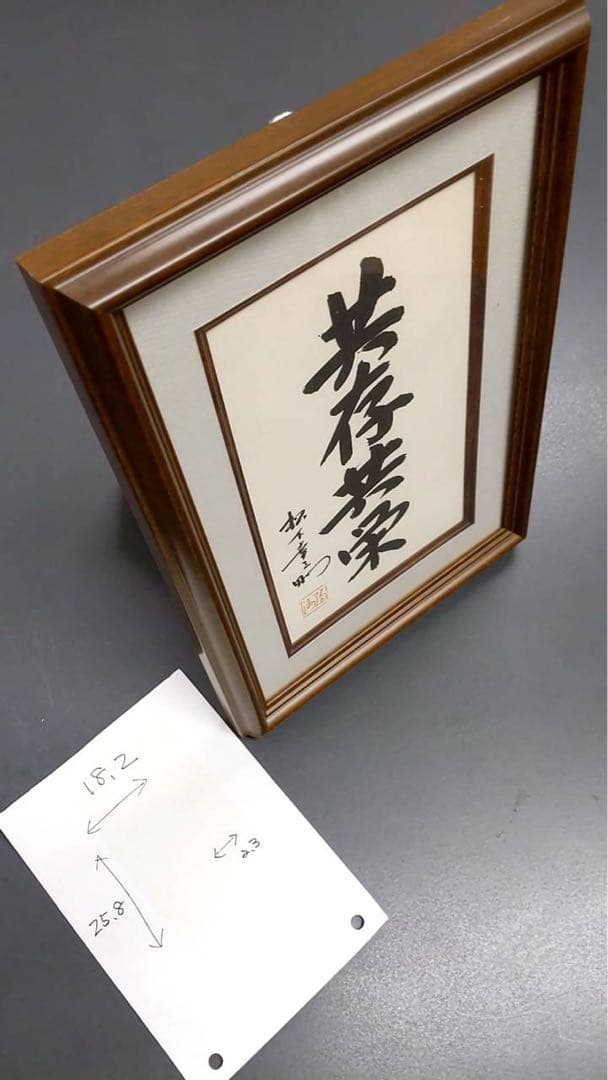 共存共栄
松下幸之助
18.2
25.8
2.3